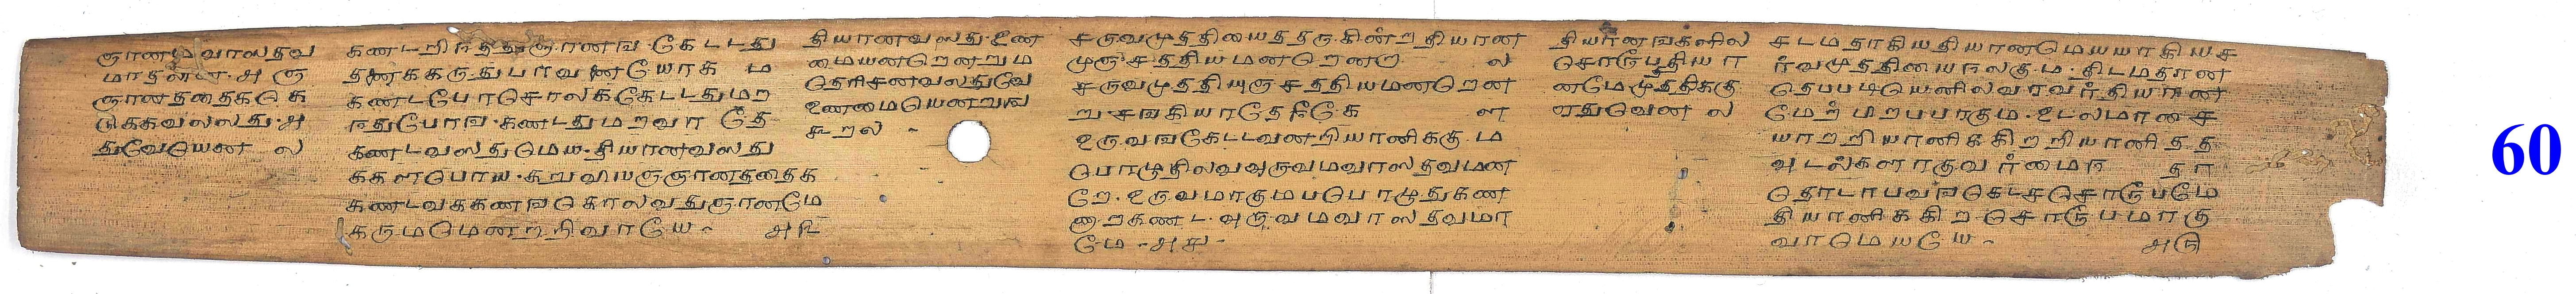 ஞானமவாஸதவ
மாதலா.அரு
ஞானததைககெ
டுககவலலது.அ
துவேயெண ல
கணடறிநததுஞானங.கேடடது
தனககருதுபாவணயோக ம
கணடபோசொலககேடடதுமற
நதுபோங.கணடதுமறவா தே
கணடவஸதுமெய.தியானவஸது
ககளபொய.கூறுவியஞஞானததைக
கணடவககணஙகொலவதுஞானமே
கருமமெனறறிவாயே அ௩
தியானவஸது.உண
மையனறெனறும
தெரிசனவஸதுவே
உணமையெனறுங
கூறல
சருவமுததியைததரு.கினறதியான
முஞசததியமனறெனறு ல
சருவமுததியுஞசததியமனறென
று.சஙகியாதேநீகே ள
உருவஙகேடடவனறியானிககு.ம
பொழுதிலவஅருவமவாஸதவமண
றே.உருவமாகுமபபொழுதுகண
ணுறகணட.அருவமவாஸதவமா
மே அ௪
தியானஙகளில
சொரூபதியா
னமேமுததிககு
ஏதுவெண ல
சடமதாகியதியானமெயயாகியச
ர்வமுததியைநலகும.திடமதான
தெபபடியெனிலவரவர்தியான
மேற் மறபபாகும.உடலமானச
யாறறியானிககிறறியானிதத
அடலகளாகுவர்மைந தா
தொடாபவஙகெடசசொரூபமே
தியானிககிறசொரூபமாகு
வாமெயயே அ௫
60